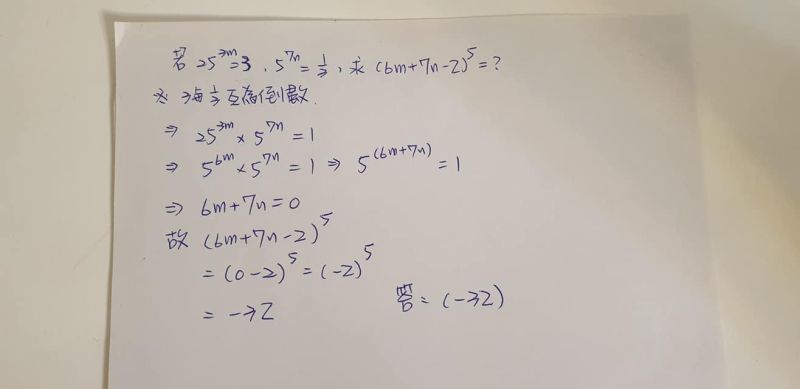 若 25^{3m}=3、5^{7n}=1/3，求 (6m+7n-2)^5=?
∵ 3與1/3互為倒數.
⇒ 25^{3m}×5^{7n}=1
⇒ 5^{6m}×5^{7n}=1 ⇒ 5^{(6m+7n)}=1
⇒ 6m+7n=0
故 (6m+7n-2)^5
=(0-2)^5=(-2)^5
=-32 答=(-32)